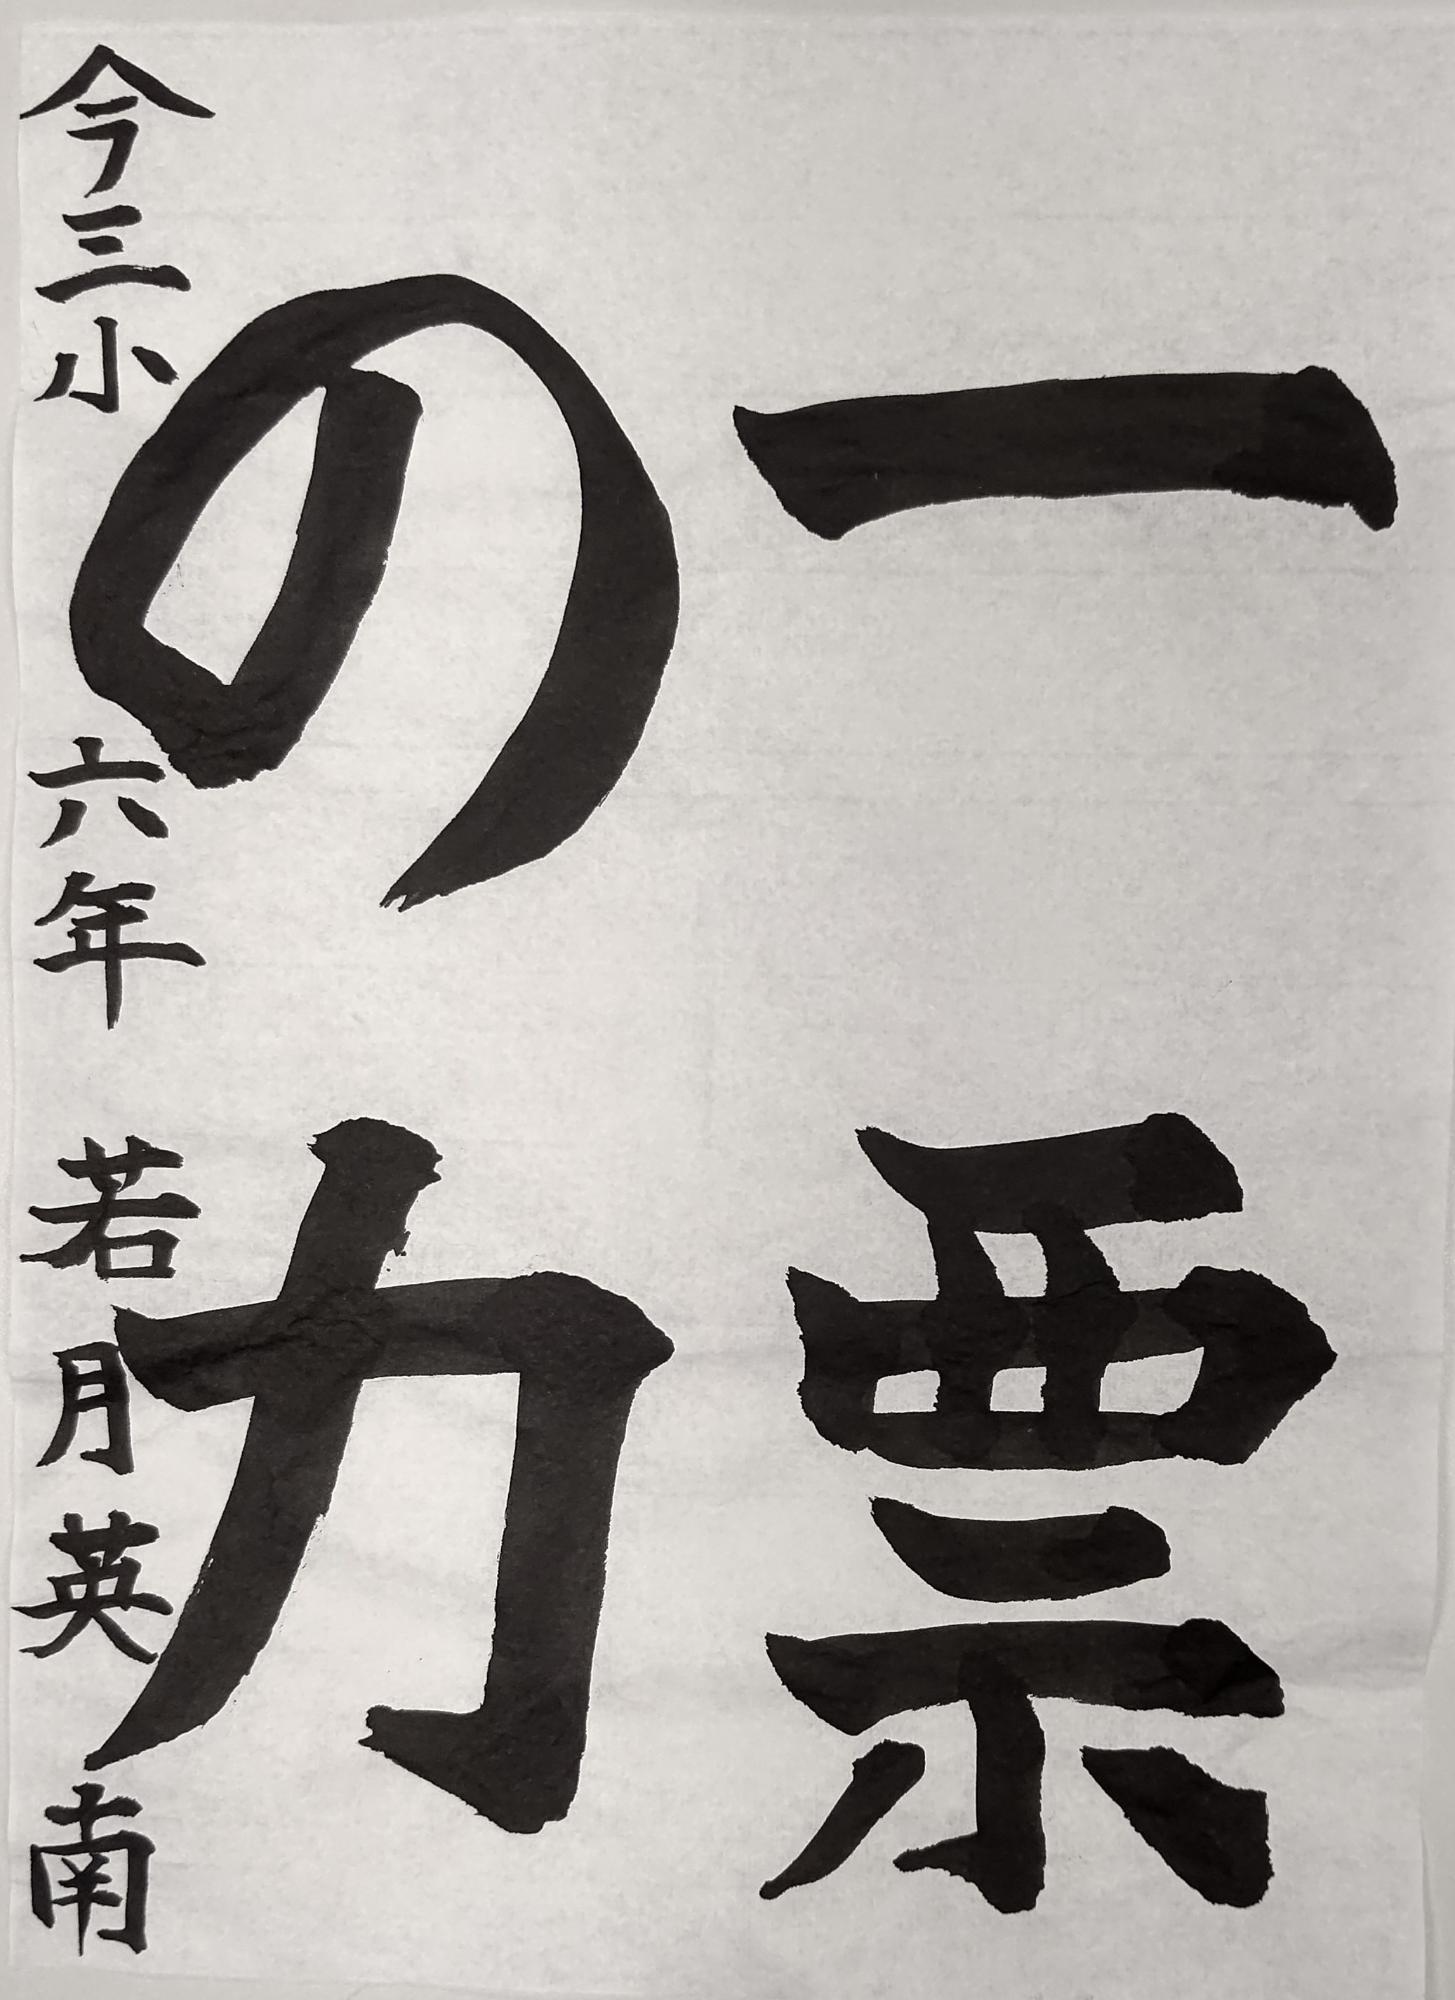 一票
の力
今三小 六年 若月英南